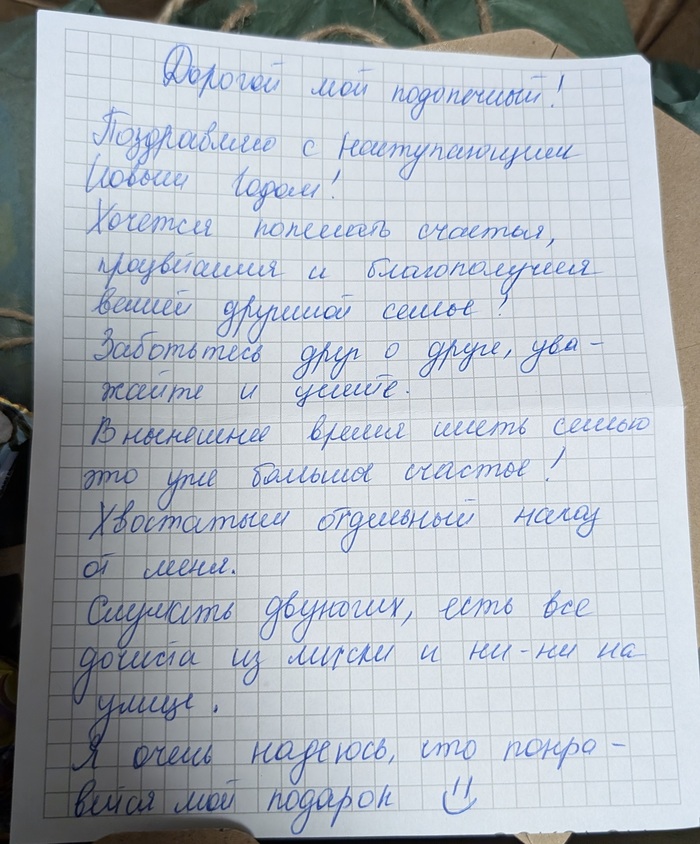 Дорогой мой подопечный!
Поздравляю с Наступающим
Новым Годом!
Хочется пожелать счастья,
процветания и благополучия
вашей дружной семье!
Заботьтесь друг о друге, ува-
жайте и цените.
В нынешнее время иметь семью
это уже большое счастье!
Хвостатым отдельный наказ
от меня.
Слушать двуногих, есть все
дочиста из миски и ни-ни на
улице.
Я очень надеюсь, что понра-
вится мой подарок